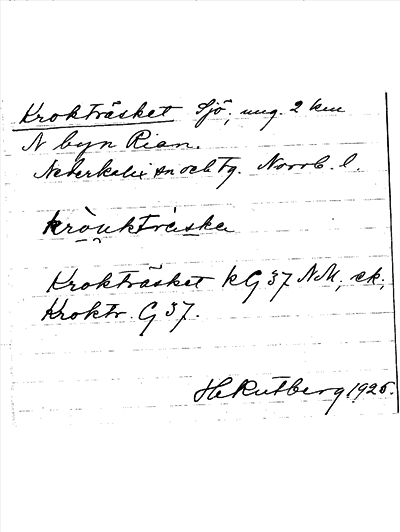 Krokträsket Sjö, ung. 2 km
N byn Rian.
Nederkalix sn och tg. Norrb. l.
kròuktràska
Krokträsket kG 37 NM, ek;
Kroktr. G 37.
H Rutberg 1925.